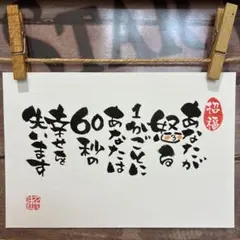 招福
あなたが
怒る
1分ごとに
あなたは
60秒の
幸せを
失います